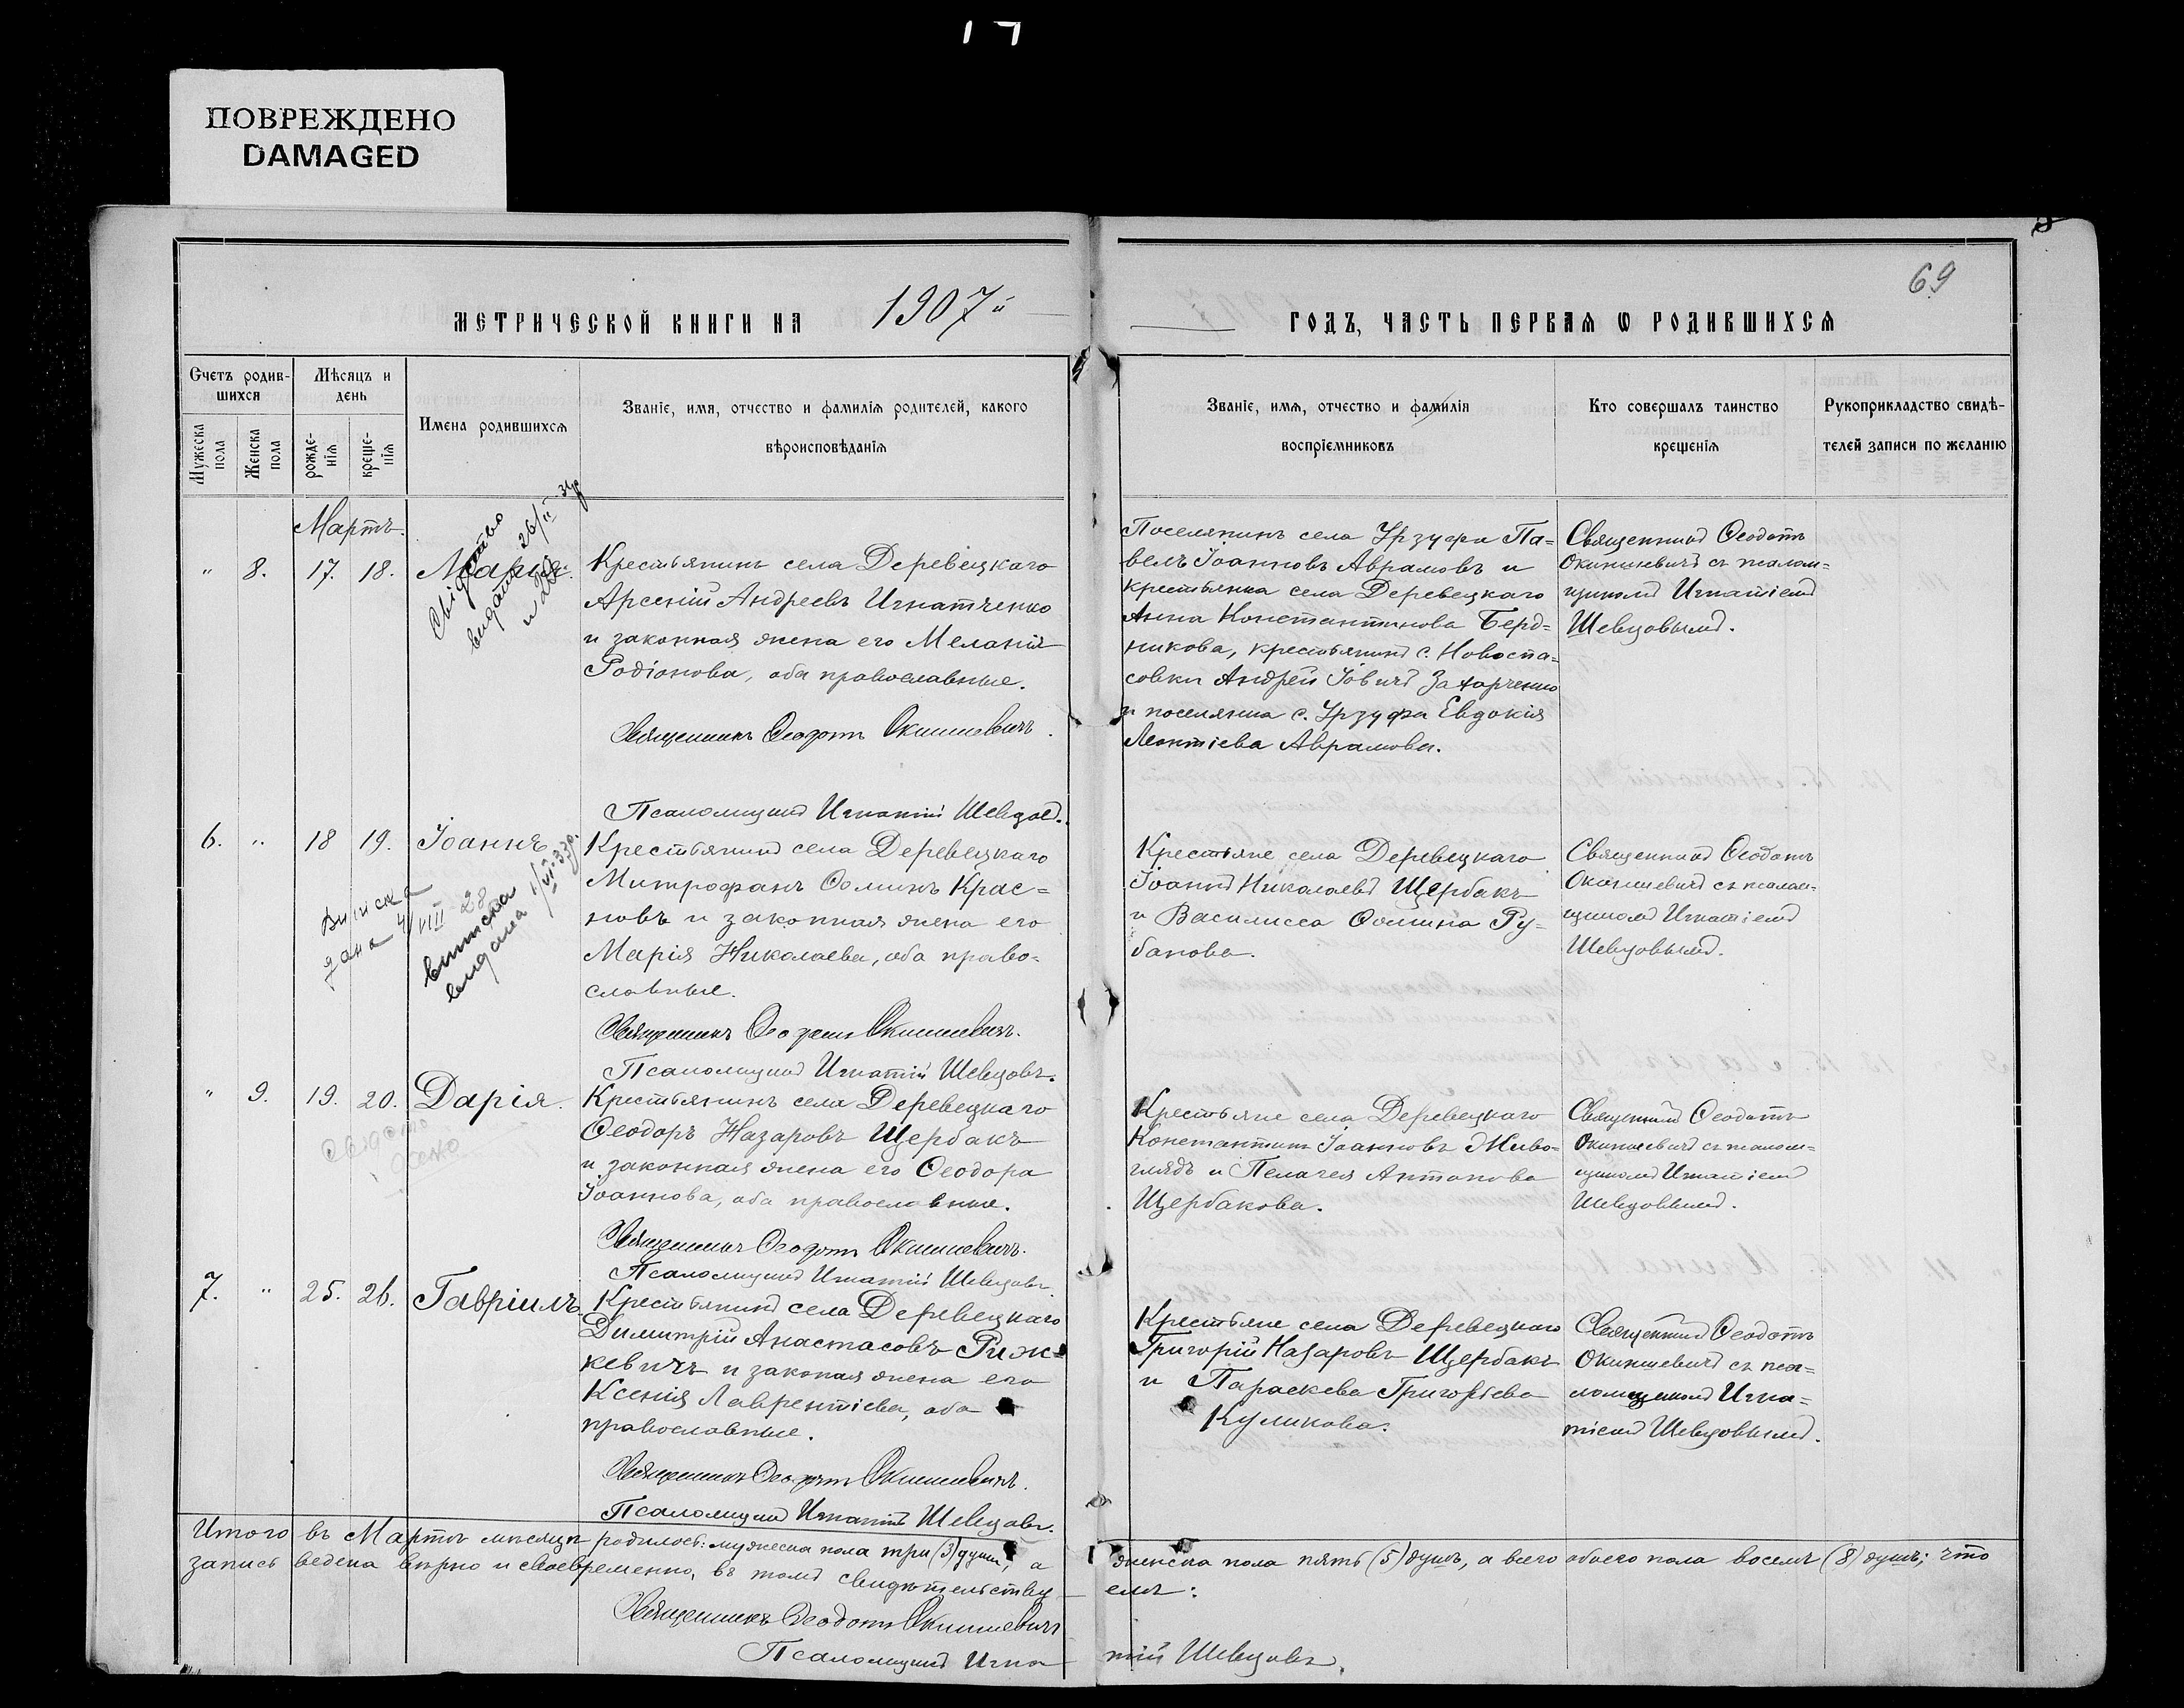 ПОВРЕЖДЕНО
DAMAGED
69
МЕТРИЧЕСКОЙ КНИГИ НА 1907й
ГОДЪ, ЧАСТЬ ПЕРВАЯ Ѡ РОДИВШИХСЯ
Счетъ родив-
шихся
Мѣсяцъ и
день
Мужеска
пола
Женска
пола
рожде-
нія
креще-
нія
Имена родившихся
Званіе, имя, отчество и фамилія родителей, какого
вѣроисповѣданія
Званіе, имя, отчество и фамилія
воспріемниковъ
Кто совершалъ таинство
крещенія
Рукоприкладство свидѣ-
телей записи по желанію
Мартъ.
" 8. 17. 18. Марія.
Крестьянинъ села Деревецкаго
Арсеній Андреевъ Игнатченко
и законная жена его Меланія
Родіонова, оба православные.
Священникъ Ѳеодотъ Окишевичъ.
Псаломщикъ Игнатій Шевцовъ.
Поселянинъ села Урзуфа Па=
велъ Іоанновъ Аврамовъ и
крестьянка села Деревецкаго
Анна Константинова Берд=
никова, крестьянинъ с. Новоспа=
совки Андрей Іовичъ Захарченко
и поселянка с. Урзуфа Евдокія
Леонтіева Аврамова.
Священникъ Ѳеодотъ
Окишевичъ съ псалом=
щикомъ Игнатіемъ
Шевцовымъ.
6. " 18 19. Іоаннъ
Виписка
дана 4/VIII 28
виписка
видана 1/VI-33р.
Крестьянинъ села Деревецкаго
Митрофанъ Ѳоминъ Крас=
новъ и законная жена его
Марія Николаева, оба право=
славные.
Священникъ Ѳеодотъ Окишевичъ.
Псаломщикъ Игнатій Шевцовъ.
Крестьяне села Деревецкаго
Іоаннъ Николаевъ Щербакъ
и Василисса Ѳомина Ру=
банова.
Священникъ Ѳеодотъ
Окишевичъ съ псалом=
щикомъ Игнатіемъ
Шевцовымъ.
" 9. 19. 20. Дарія.
Крестьянинъ села Деревецкаго
Ѳеодоръ Назаровъ Щербакъ
и законная жена его Ѳеодора
Іоаннова, оба православные.
Священникъ Ѳеодотъ Окишевичъ.
Псаломщикъ Игнатій Шевцовъ.
Крестьяне села Деревецкаго
Константинъ Іоанновъ Живо=
глядъ и Пелагея Антонова
Щербакова.
Священникъ Ѳеодотъ
Окишевичъ съ псалом=
щикомъ Игнатіемъ
Шевцовымъ.
7. " 25. 26. Гавріилъ.
Крестьянинъ села Деревецкаго
Димитрій Анастасовъ Риж=
кевичъ и законная жена его
Ксенія Лаврентіева, оба
православные.
Священникъ Ѳеодотъ Окишевичъ.
Псаломщикъ Игнатій Шевцовъ.
Крестьяне села Деревецкаго
Григорій Назаровъ Щербакъ
и Параскева Григорьева
Куликова.
Священникъ Ѳеодотъ
Окишевичъ съ пса=
ломщикомъ Игна=
тіемъ Шевцовымъ.
Итого въ Мартѣ мѣсяцѣ родилось: мужеска пола три (3) души, а женска пола пять (5) душъ, а всего обоего пола восемь (8) душъ; что
запись ведена вѣрно и своевременно, въ томъ свидѣтельству емъ:
Священникъ Ѳеодотъ Окишевичъ
Псаломщикъ Игна тій Шевцовъ.